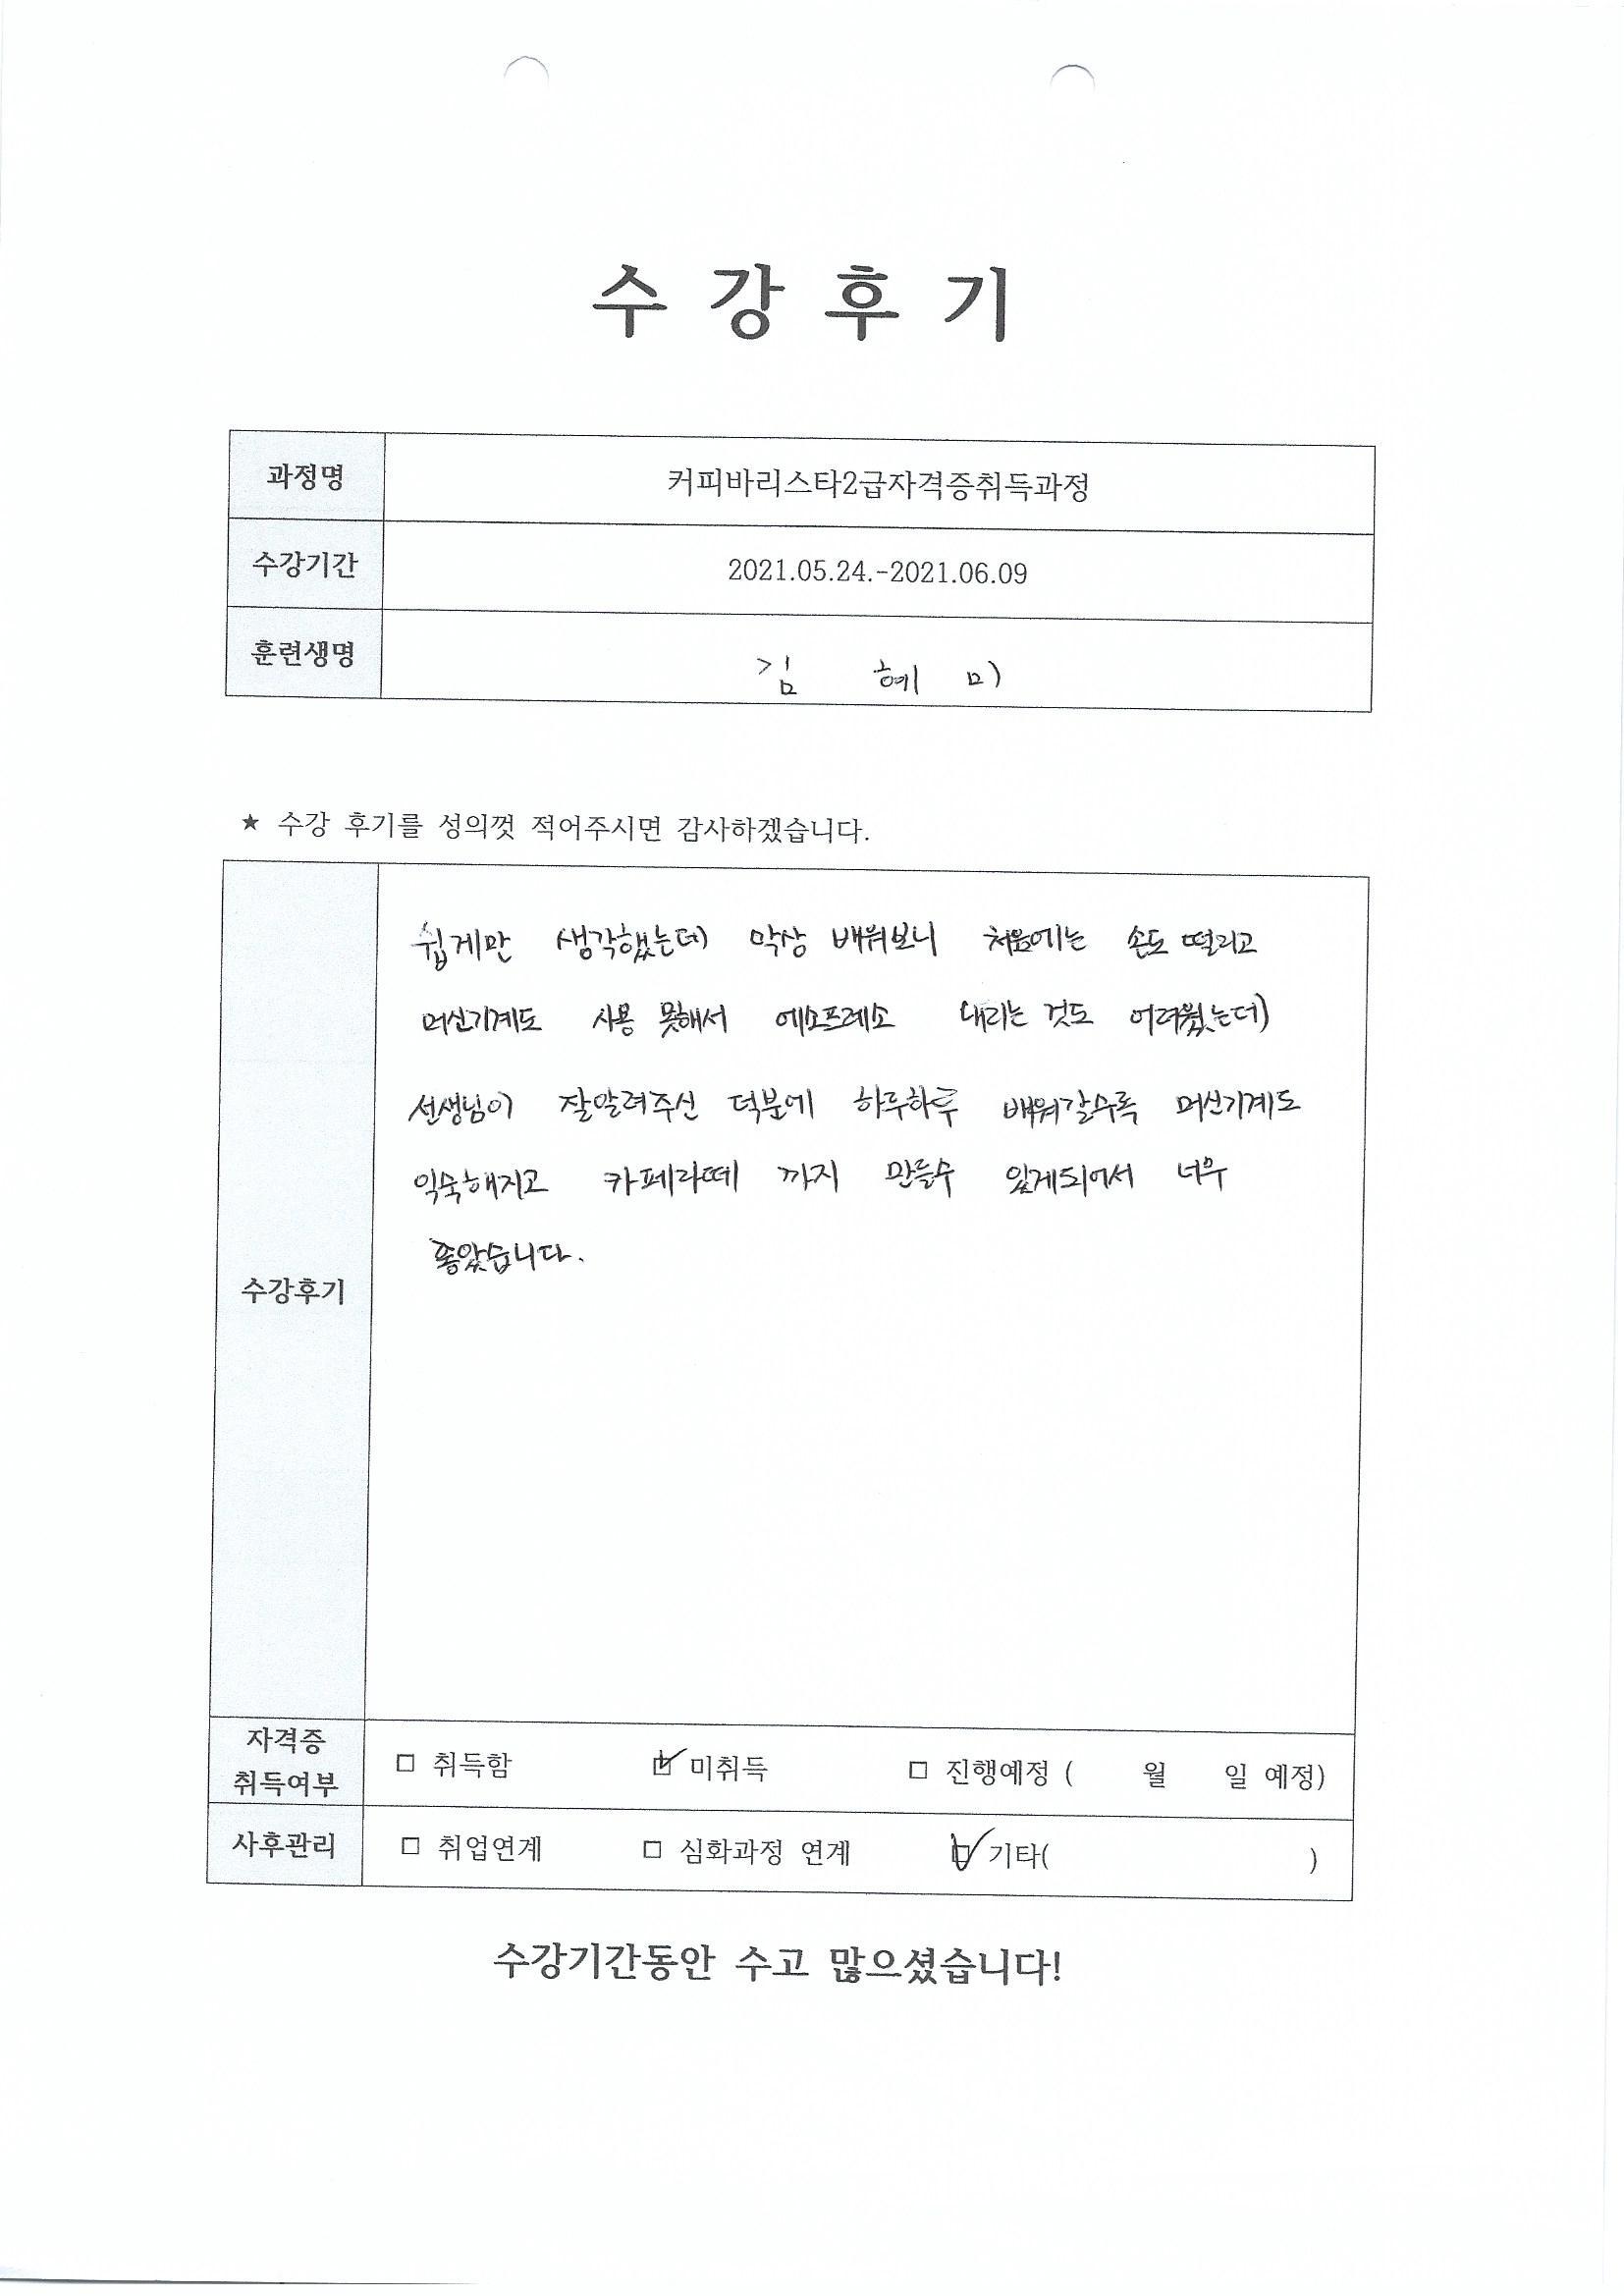 수 강 후 기
과정명 커피바리스타2급자격증취득과정
수강기간 2021.05.24.-2021.06.09
훈련생명 김 혜 미
★ 수강 후기를 성의껏 적어주시면 감사하겠습니다.
쉽게만 생각했는데 막상 배워보니 처음에는 손도 떨리고
머신기계도 사용 못해서 에소프레소 내리는 것도 어려웠는데
선생님이 잘알려주신 덕분에 하루하루 배워갈수록 머신기계도
익숙해지고 카페라떼 까지 만들수 있게되어서 너무
좋았습니다.
수강후기
자격증
취득여부
□ 취득함 ☑ 미취득 □ 진행예정 ( 월 일 예정)
사후관리 □ 취업연계 □ 심화과정 연계 ☑ 기타( )
수강기간동안 수고 많으셨습니다!